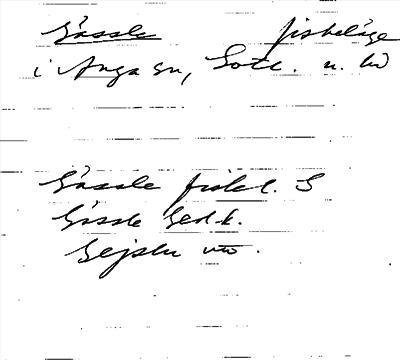 Gässle fiskeläge
i Ånga sn, Gotl. n. hd
Gässle fiskel. S
Gässle Ged.k.
Gejslu